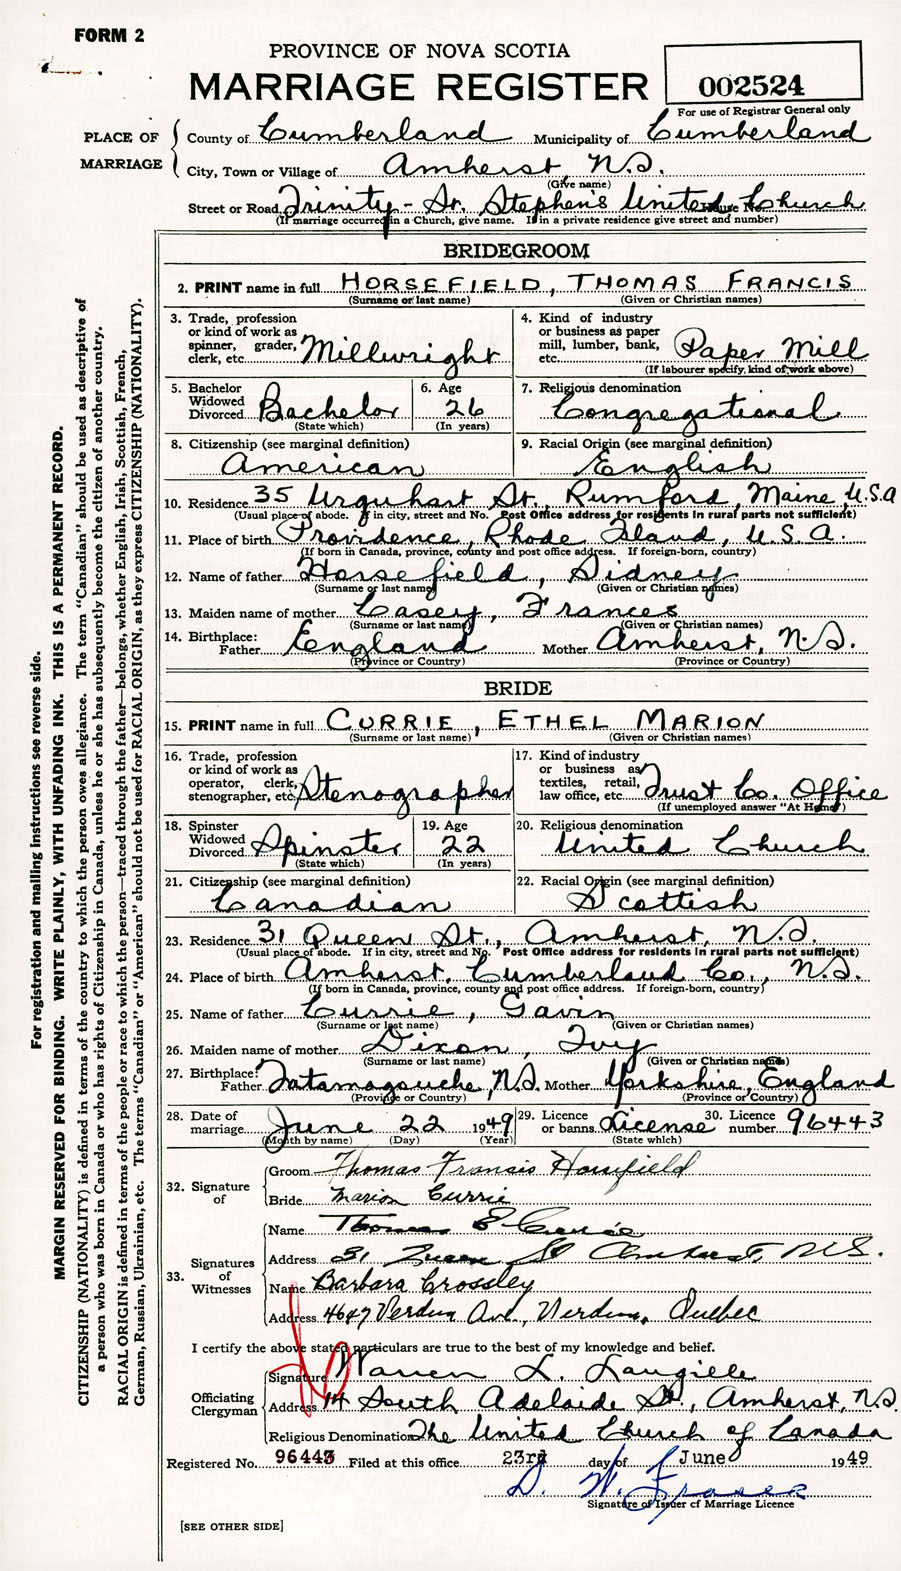 FORM 2
PROVINCE OF NOVA SCOTIA
MARRIAGE REGISTER
002524
For use of Registrar General only
PLACE OF MARRIAGE
County of Cumberland Municipality of Cumberland
City, Town or Village of Amherst, N.S.
(Give name)
Street or Road Trinity - St. Stephen's United Church House No.
(If marriage occurred in a Church, give name. If in a private residence give street and number)
BRIDEGROOM
2. PRINT name in full HORSEFIELD, THOMAS FRANCIS
(Surname or last name) (Given or Christian names)
3. Trade, profession or kind of work as spinner, grader, clerk, etc. Millwright
4. Kind of industry or business as paper mill, lumber, bank, etc. Paper Mill
(If labourer specify kind of work above)
5. Bachelor Widowed Divorced Bachelor
(State which)
6. Age 26
(In years)
7. Religious denomination Congregational
8. Citizenship (see marginal definition) American
9. Racial Origin (see marginal definition) English
10. Residence 35 Urquhart St. Rumford, Maine U.S.A
(Usual place of abode. If in city, street and No. Post Office address for residents in rural parts not sufficient)
11. Place of birth Providence, Rhode Island, U.S.A.
(If born in Canada, province, county and post office address. If foreign-born, country)
12. Name of father Horsefield, Sidney
(Surname or last name) (Given or Christian names)
13. Maiden name of mother Casey, Frances
(Surname or last name) (Given or Christian names)
14. Birthplace: Father England Mother Amherst, N.S.
(Province or Country) (Province or Country)
BRIDE
15. PRINT name in full CURRIE, ETHEL MARION
(Surname or last name) (Given or Christian names)
16. Trade, profession or kind of work as operator, clerk, stenographer, etc. Stenographer
17. Kind of industry or business as textiles, retail, law office, etc. Trust Co. Office
(If unemployed answer "At Home")
18. Spinster Widowed Divorced Spinster
(State which)
19. Age 22
(In years)
20. Religious denomination United Church
21. Citizenship (see marginal definition) Canadian
22. Racial Origin (see marginal definition) Scottish
23. Residence 31 Queen St., Amherst, N.S.
(Usual place of abode. If in city, street and No. Post Office address for residents in rural parts not sufficient)
24. Place of birth Amherst, Cumberland Co., N.S.
(If born in Canada, province, county and post office address. If foreign-born, country)
25. Name of father Currie, Gavin
(Surname or last name) (Given or Christian names)
26. Maiden name of mother Dixon, Ivy
(Surname or last name) (Given or Christian names)
27. Birthplace: Father Tatamagouche, N.S. Mother Yorkshire, England
(Province or Country) (Province or Country)
28. Date of marriage June 22 1949
(Month by name) (Day) (Year)
29. Licence or banns License
(State which)
30. Licence number 96443
32. Signature of
Groom Thomas Francis Horsefield
Bride Marion Currie
33. Signatures of Witnesses
Name Thomas E Currie
Address 31 Queen St Amherst, N.S.
Name Barbara Crossley
Address 4647 Verdun Ave, Verdun, Quebec
I certify the above stated particulars are true to the best of my knowledge and belief.
Officiating Clergyman
Signature Warren L. Langille
Address 14 South Adelaide St., Amherst, N.S.
Religious Denomination The United Church of Canada
Registered No. 96443 Filed at this office 23rd day of June 1949
D. W. Fraser
Signature of Issuer of Marriage Licence
[SEE OTHER SIDE]
For registration and mailing instructions see reverse side.
MARGIN RESERVED FOR BINDING. WRITE PLAINLY, WITH UNFADING INK. THIS IS A PERMANENT RECORD.
CITIZENSHIP (NATIONALITY) is defined in terms of the country to which the person owes allegiance. The term "Canadian" should be used as descriptive of
a person who was born in Canada or who has rights of Citizenship in Canada, unless he or she has subsequently become the citizen of another country.
RACIAL ORIGIN is defined in terms of the people or race to which the person—traced through the father—belongs, whether English, Irish, Scottish, French,
German, Russian, Ukrainian, etc. The terms "Canadian" or "American" should not be used for RACIAL ORIGIN, as they express CITIZENSHIP (NATIONALITY).